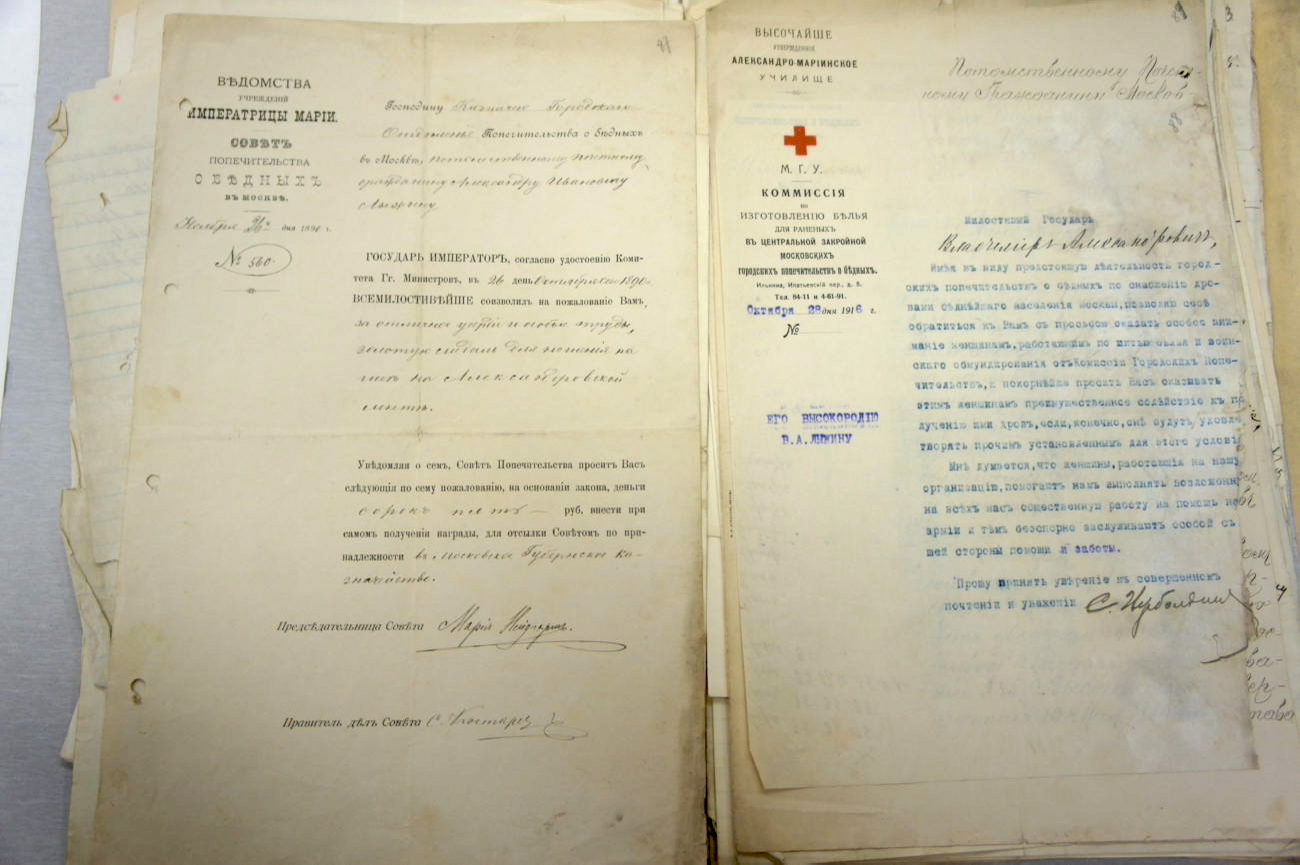 87
ВѢДОМСТВА
УЧРЕЖДЕНІЙ
ИМПЕРАТРИЦЫ МАРІИ.
СОВѢТЪ
ПОПЕЧИТЕЛЬСТВА
О БѢДНЫХЪ
ВЪ МОСКВѢ.
Ноября 26 дня 1890 г.
№ 560.
Господину Казначею Городского
Отдѣленія Попечительства о бѣдныхъ
въ Москвѣ, потомственному почетному
гражданину Александру Ивановичу
Лыжину
ГОСУДАРЬ ИМПЕРАТОРЪ, согласно удостоенію Коми-
тета Гг. Министровъ, въ 26 день Октября 1890 г.
ВСЕМИЛОСТИВѢЙШЕ соизволилъ на пожалованіе Вамъ,
за отличное усердіе и особые труды,
золотую медаль для ношенія на
шеѣ на Александровской
лентѣ.
Увѣдомляя о семъ, Совѣтъ Попечительства проситъ Васъ
слѣдующія по сему пожалованію, на основаніи закона, деньги
сорокъ пять руб. внести при
самомъ полученіи награды, для отсылки Совѣтомъ по при-
надлежности въ Московское Губернское ка-
значейство.
Предсѣдательница Совѣта Марія
Правитель дѣлъ Совѣта С.
3
ВЫСОЧАЙШЕ
УТВЕРЖДЕННОЕ
АЛЕКСАНДРО-МАРІИНСКОЕ
УЧИЛИЩЕ
Потомственному Почет-
ному Гражданину Москов-
88
М. Г. У.
КОММИССІЯ
по
ИЗГОТОВЛЕНІЮ БѢЛЬЯ
ДЛЯ РАНЕНЫХЪ
ВЪ ЦЕНТРАЛЬНОЙ ЗАКРОЙНОЙ
МОСКОВСКИХЪ
городскихъ попечительствъ о бѣдныхъ.
Ильинка, Ипатьевскій пер., д. 5.
Тел. 84-11 и 4-61-91.
Октября 28 дня 1916 г.
№
ЕГО ВЫСОКОРОДІЮ
В.А.ЛЫЖИНУ
Милостивый Государь
Владиміръ Александровичъ,
Имѣя въ виду предстоящую дѣятельность город-
скихъ попечительствъ о бѣдныхъ по снабженію дро-
вами бѣднѣйшаго населенія Москвы, позволяю себѣ
обратиться къ Вамъ съ просьбою оказать особое вни-
маніе женщинамъ, работающимъ по шитью бѣлья и воин-
скаго обмундированія отъ Комиссіи Городскихъ Попе-
чительствъ, и покорнѣйше просить Васъ оказывать
этимъ женщинамъ преимущественное содѣйствіе къ по
лученію ими дровъ, если, конечно, онѣ будутъ удовле
творять прочимъ установленнымъ для этого условія
Мнѣ думается, что женщины, работающія на нашу
организацію, помогаютъ намъ выполнять возложенн
на всѣхъ насъ общественную работу на помощь на
арміи и тѣмъ безспорно заслуживаютъ особой съ
шей стороны помощи и заботы.
Прошу принять увѣреніе въ совершенномъ
почтеніи и уваженіи С.